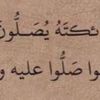 ئكتَهُ يُصَلُّونَ
وا صَلُّوا عليه و